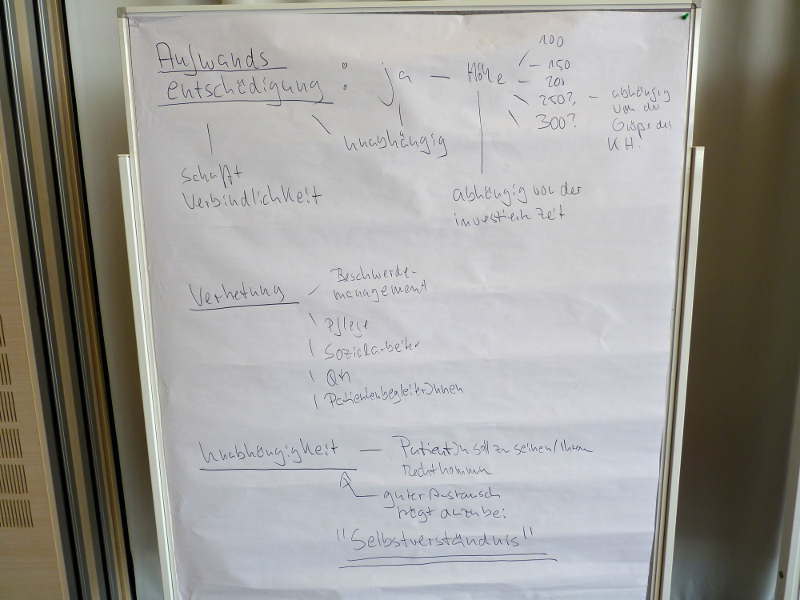 Aufwands
entschädigung : ja — Höhe
100
150
200
250?
300?
abhängig
von der
Größe des
KH!
unabhängig
schafft
Verbindlichkeit
abhängig von der
Zeit
Vertretung
Beschwerde-
management
Pflege
Sozialarbeiter
QM
PatientenbegleiterInnen
Unabhängigkeit — PatientIn soll zu seinen/ihrem
guter Austausch
"Selbstverständnis"